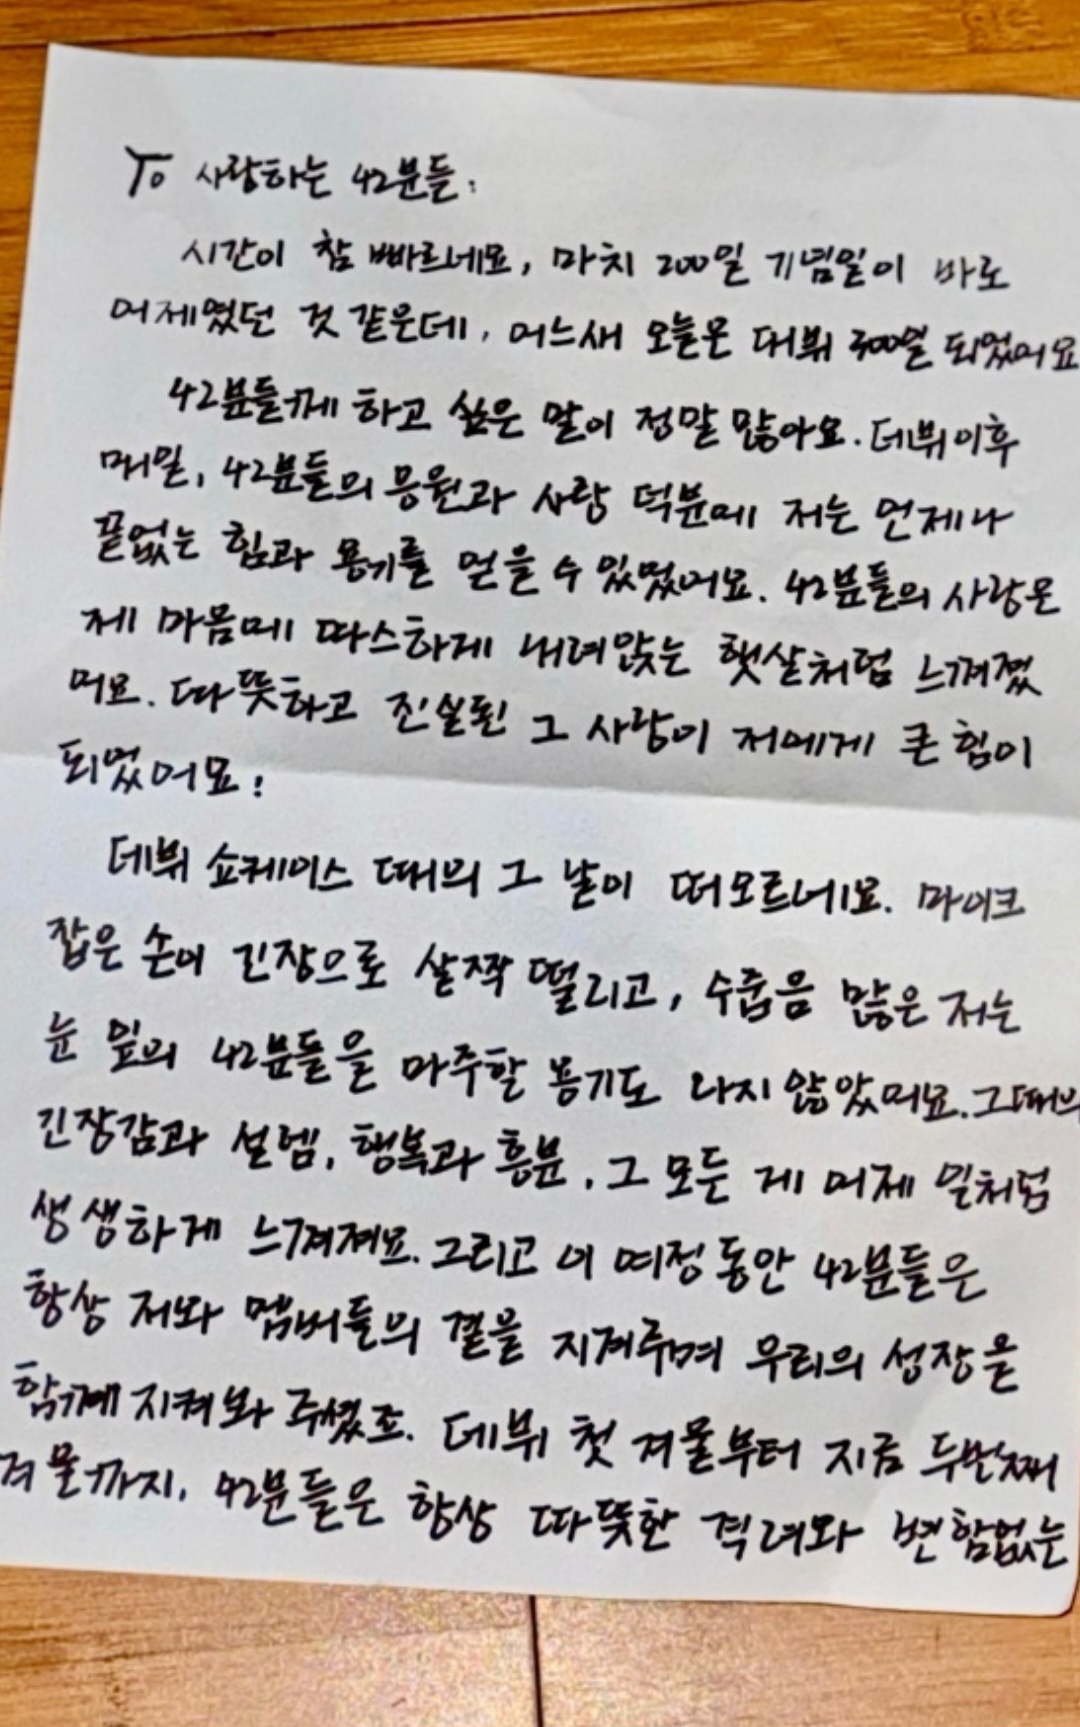 To 사랑하는 42분들:
시간이 참 빠르네요, 마치 200일 기념일이 바로
어제였던 것 같은데, 어느새 오늘은 데뷔 300일 되었어요
42분들께 하고 싶은 말이 정말 많아요. 데뷔 이후
매일, 42분들의 응원과 사랑 덕분에 저는 언제나
끝없는 힘과 용기를 얻을 수 있었어요. 42분들의 사랑은
제 마음에 따스하게 내려앉는 햇살처럼 느껴졌
어요. 따뜻하고 진실된 그 사랑이 저에게 큰 힘이
되었어요!
데뷔 쇼케이스 때의 그 날이 떠오르네요. 마이크
잡은 손이 긴장으로 살짝 떨리고, 수줍음 많은 저는
눈 앞의 42분들을 마주할 용기도 나지 않았어요. 그때의
긴장감과 설렘, 행복과 흥분, 그 모든 게 어제 일처럼
생생하게 느껴져요. 그리고 이 여정 동안 42분들은
항상 저와 멤버들의 곁을 지켜주며 우리의 성장을
함께 지켜봐 주셨죠. 데뷔 첫 겨울부터 지금 두번째
겨울까지, 42분들은 항상 따뜻한 격려와 변함없는